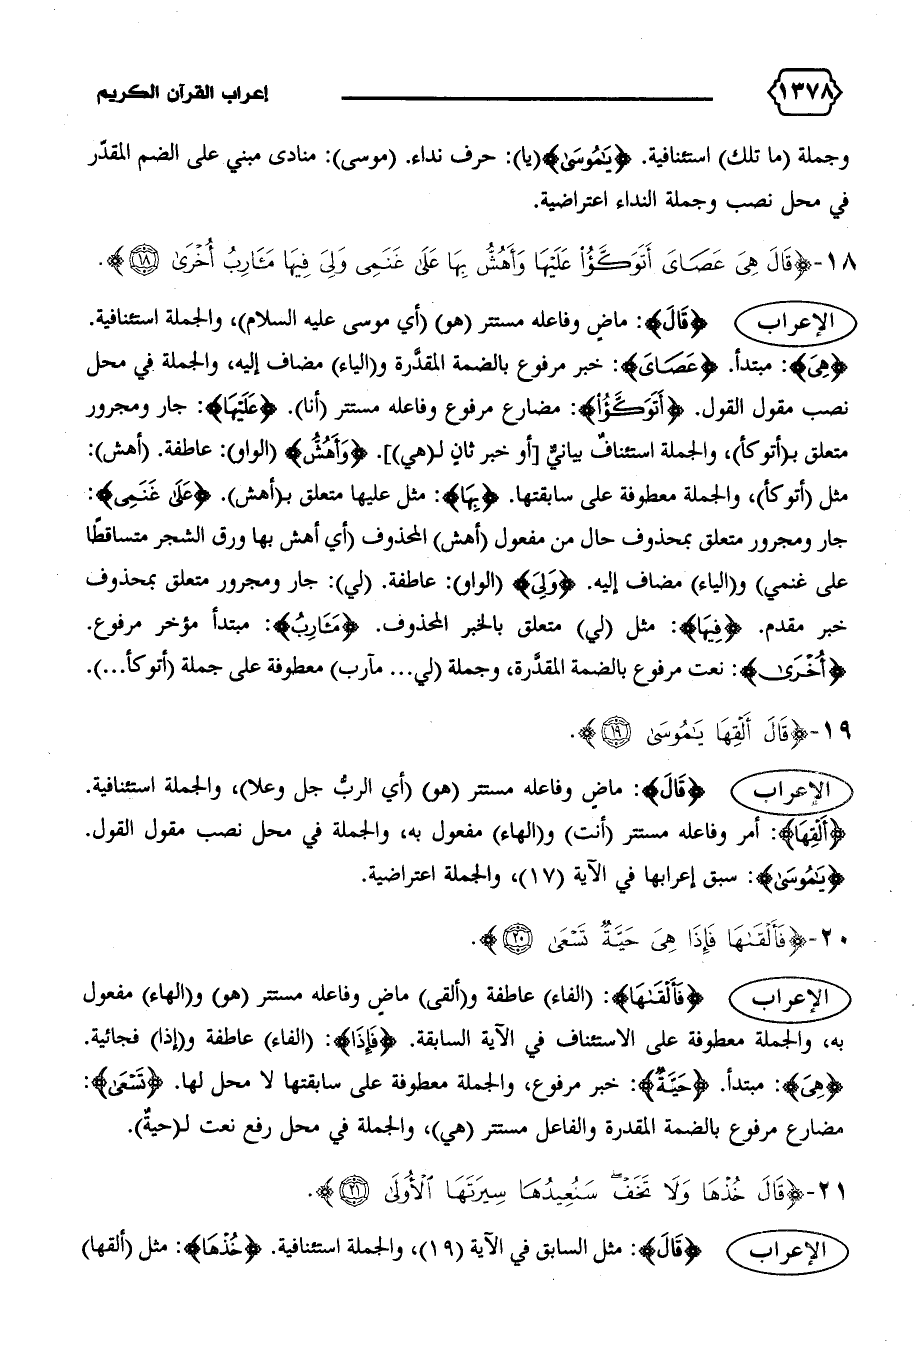 ١٣٧٨ إعراب القرآن الكريم
وجملة (ما تلك) استئنافية. ﴿يَٰمُوسَىٰ﴾(يا): حرف نداء. (موسى): منادى مبني على الضم المقدّر
في محل نصب وجملة النداء اعتراضية.
١٨-﴿قَالَ هِىَ عَصَاىَ أَتَوَكَّؤُا۟ عَلَيْهَا وَأَهُشُّ بِهَا عَلَىٰ غَنَمِى وَلِىَ فِيهَا مَـَٔارِبُ أُخْرَىٰ ١٨﴾.
الإعراب ﴿قَالَ﴾: ماضٍ وفاعله مستتر (هو) (أي موسى عليه السلام)، والجملة استئنافية.
﴿هِىَ﴾: مبتدأ. ﴿عَصَاىَ﴾: خبر مرفوع بالضمة المقدَّرة و(الياء) مضاف إليه، والجملة في محل
نصب مقول القول. ﴿أَتَوَكَّؤُا۟﴾: مضارع مرفوع وفاعله مستتر (أنا). ﴿عَلَيْهَا﴾: جار ومجرور
متعلق بـ(أتوكأ)، والجملة استئنافٌ بيانيٌّ [أو خبر ثانٍ لـ(هي)]. ﴿وَأَهُشُّ﴾ (الواو): عاطفة. (أهش):
مثل (أتوكأ)، والجملة معطوفة على سابقتها. ﴿بِهَا﴾: مثل عليها متعلق بـ(أهش). ﴿عَلَىٰ غَنَمِى﴾:
جار ومجرور متعلق بمحذوف حال من مفعول (أهش) المحذوف (أي أهش بها ورق الشجر متساقطًا
على غنمي) و(الياء) مضاف إليه. ﴿وَلِىَ﴾ (الواو): عاطفة. (لي): جار ومجرور متعلق بمحذوف
خبر مقدم. ﴿فِيهَا﴾: مثل (لي) متعلق بالخبر المحذوف. ﴿مَـَٔارِبُ﴾: مبتدأ مؤخر مرفوع.
﴿أُخْرَىٰ﴾: نعت مرفوع بالضمة المقدَّرة، وجملة (لي... مآرب) معطوفة على جملة (أتوكأ...).
١٩-﴿قَالَ أَلْقِهَا يَٰمُوسَىٰ ١٩﴾.
الإعراب ﴿قَالَ﴾: ماضٍ وفاعله مستتر (هو) (أي الربُّ جل وعلا)، والجملة استئنافية.
﴿أَلْقِهَا﴾: أمر وفاعله مستتر (أنت) و(الهاء) مفعول به، والجملة في محل نصب مقول القول.
﴿يَٰمُوسَىٰ﴾: سبق إعرابها في الآية (١٧)، والجملة اعتراضية.
٢٠-﴿فَأَلْقَىٰهَا فَإِذَا هِىَ حَيَّةٌ تَسْعَىٰ ٢٠﴾.
الإعراب ﴿فَأَلْقَىٰهَا﴾: (الفاء) عاطفة و(ألقى) ماضٍ وفاعله مستتر (هو) و(الهاء) مفعول
به، والجملة معطوفة على الاستئناف في الآية السابقة. ﴿فَإِذَا﴾: (الفاء) عاطفة و(إذا) فجائية.
﴿هِىَ﴾: مبتدأ. ﴿حَيَّةٌ﴾: خبر مرفوع، والجملة معطوفة على سابقتها لا محل لها. ﴿تَسْعَىٰ﴾:
مضارع مرفوع بالضمة المقدرة والفاعل مستتر (هي)، والجملة في محل رفع نعت لـ(حيةٌ).
٢١-﴿قَالَ خُذْهَا وَلَا تَخَفْ ۖ سَنُعِيدُهَا سِيرَتَهَا ٱلْأُولَىٰ ٢١﴾.
الإعراب ﴿قَالَ﴾: مثل السابق في الآية (١٩)، والجملة استئنافية. ﴿خُذْهَا﴾: مثل (ألقها)